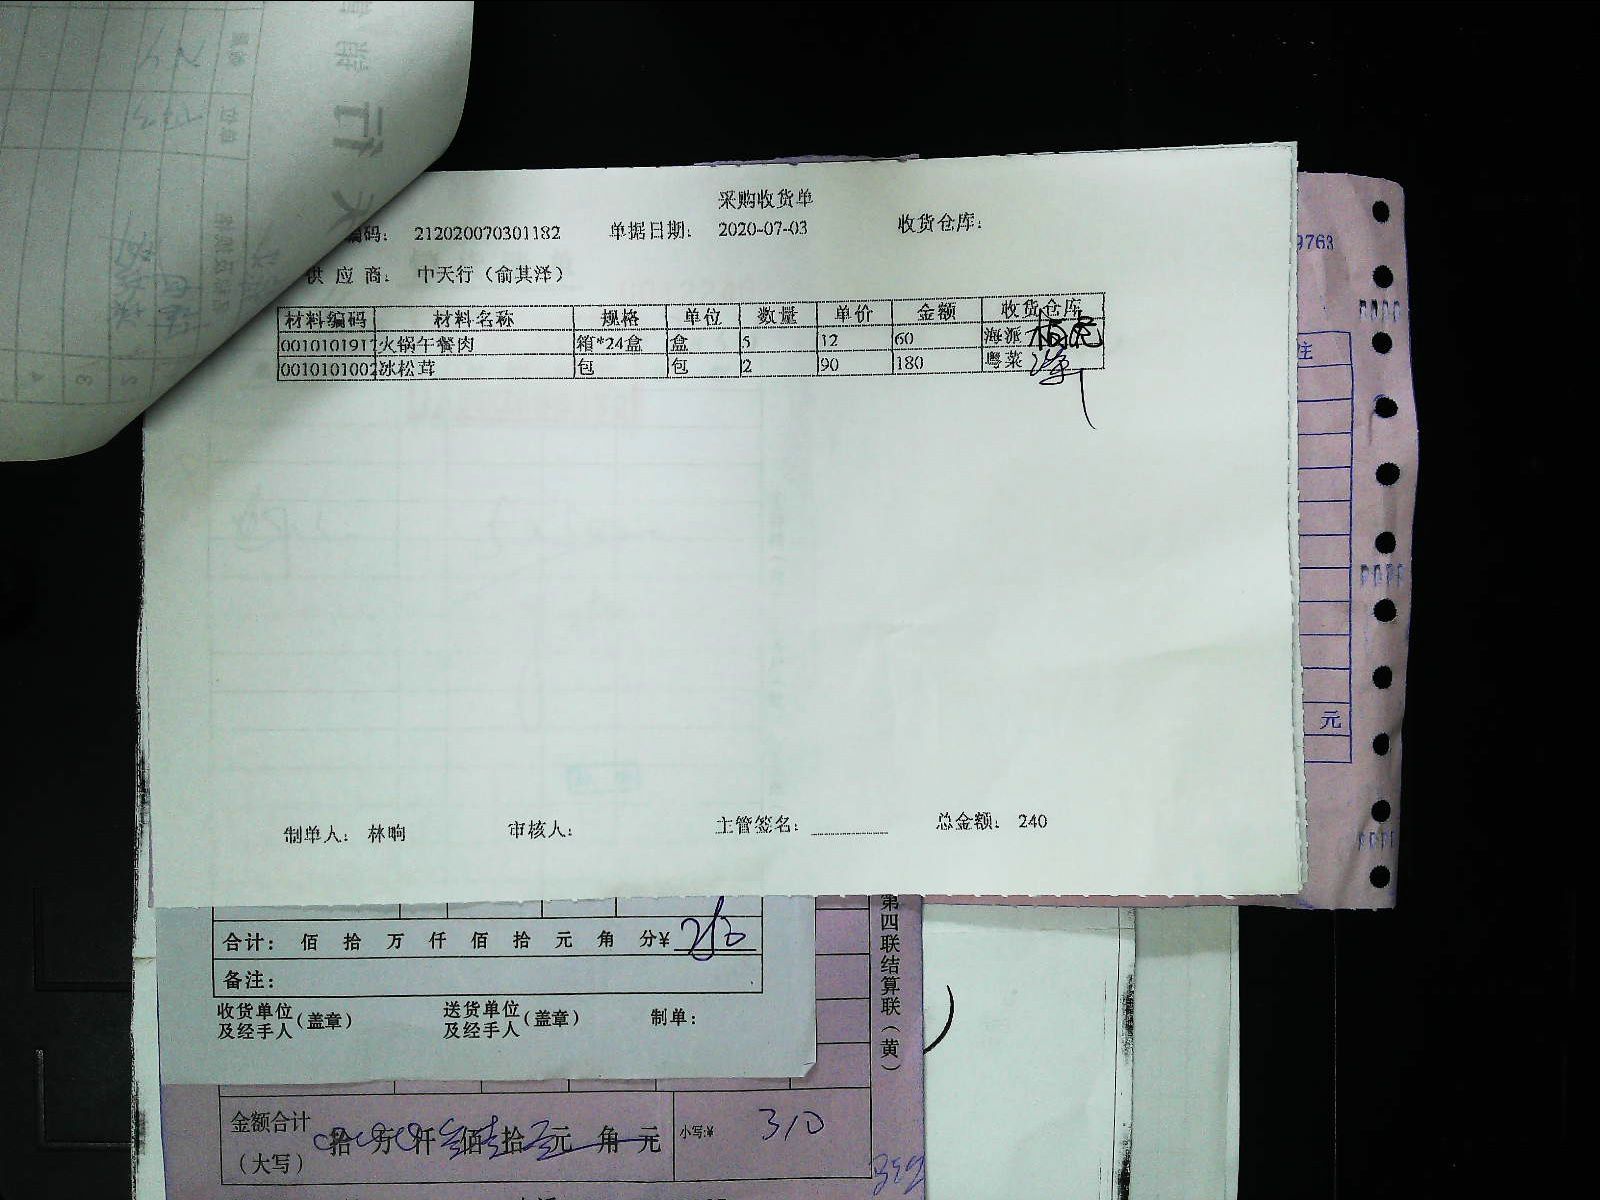 采购收货单
编码： 212020070301182 单据日期： 2020-07-03 收货仓库：
供 应 商： 中天行（俞其泽）
材料编码 材料名称 规格 单位 数量 单价 金额 收货仓库
0010101917 火锅午餐肉 箱*24盒 盒 5 12 60 海派
0010101002 冰松茸 包 包 2 90 180 粤菜
制单人： 林昫 审核人： 主管签名： 总金额： 240
9763
注
元
合计： 佰 拾 万 仟 佰 拾 元 角 分¥
备注：
收货单位及经手人（盖章） 送货单位及经手人（盖章） 制单：
第四联结算联（黄）
金额合计（大写） 拾 万 仟 佰 拾 元 角 元 小写:¥ 310